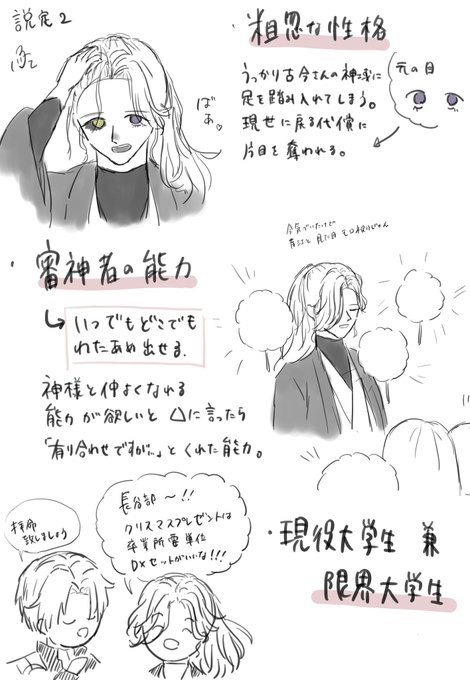 説定2
・粗忽な性格
うっかり古今さんの神域に
足を踏み入れてしまう。
現世に戻る代償に
片目を奪われる。
元の目
ばぁ♡
・審神者の能力
↳いつでもどこでも
わたあめ出せる。
神様と仲よくなれる
能力が欲しいと△に言ったら
「有り合わせですが…」とくれた能力。
今気づいたけで
拝命
致しましょう
長谷部〜!!
クリスマスプレゼントは
卒業所要単位
DXセットがいいな!!!
・現役大学生 兼
限界大学生